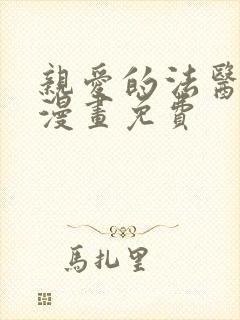 親愛的法醫
漫畫免費
馬扎里